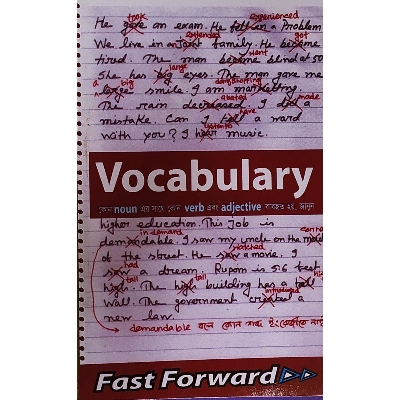 took experienced
He gave an exam. He fell in a Problem
extended got
We live in a Joint family. He became
went
tired. The man became blind at 50
large
She has big eyes. The man gave me
a big
large smile. I am marketing.
abated made
The rain decreased. I did a
have
mistake. Can I tell a word
listen to
with you? I hear music.
Vocabulary
কোন noun এর সাথে কোন verb এবং adjective ব্যবহৃত হয়, জানুন
higher education. This Job is
in demand
demandable. I saw my uncle on the
watched
of the street. He saw a movie. I
had
saw a dream. Rupom is 5.6
tall high
high. The high building has a tall
introduced
Wall. The government created a
new law.
demandable বলে কোন শব্দ ইংরেজীতে
Fast Forward